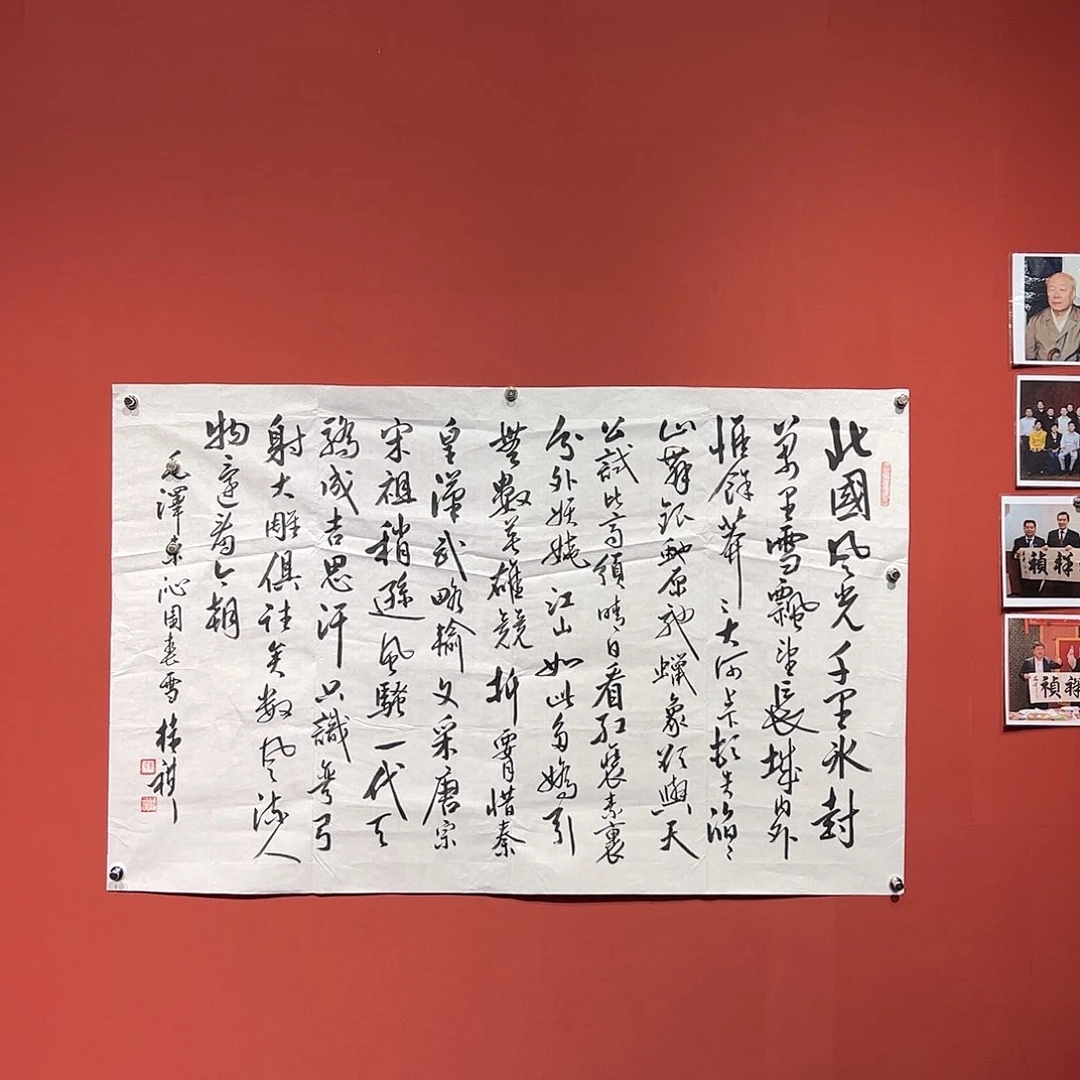 北國風光千里冰封
萬里雪飄望長城內外
惟餘莽〻大河上下頓失滔〻
山舞銀蛇原馳蠟象欲與天
公試比高須晴日看紅裝素裹
分外妖嬈江山如此多嬌引
無數英雄競折腰惜秦
皇漢武略輸文采唐宗
宋祖稍遜風騷一代天
驕成吉思汗只識彎弓
射大雕俱往矣數風流人
物還看今朝
毛澤東沁園春雪